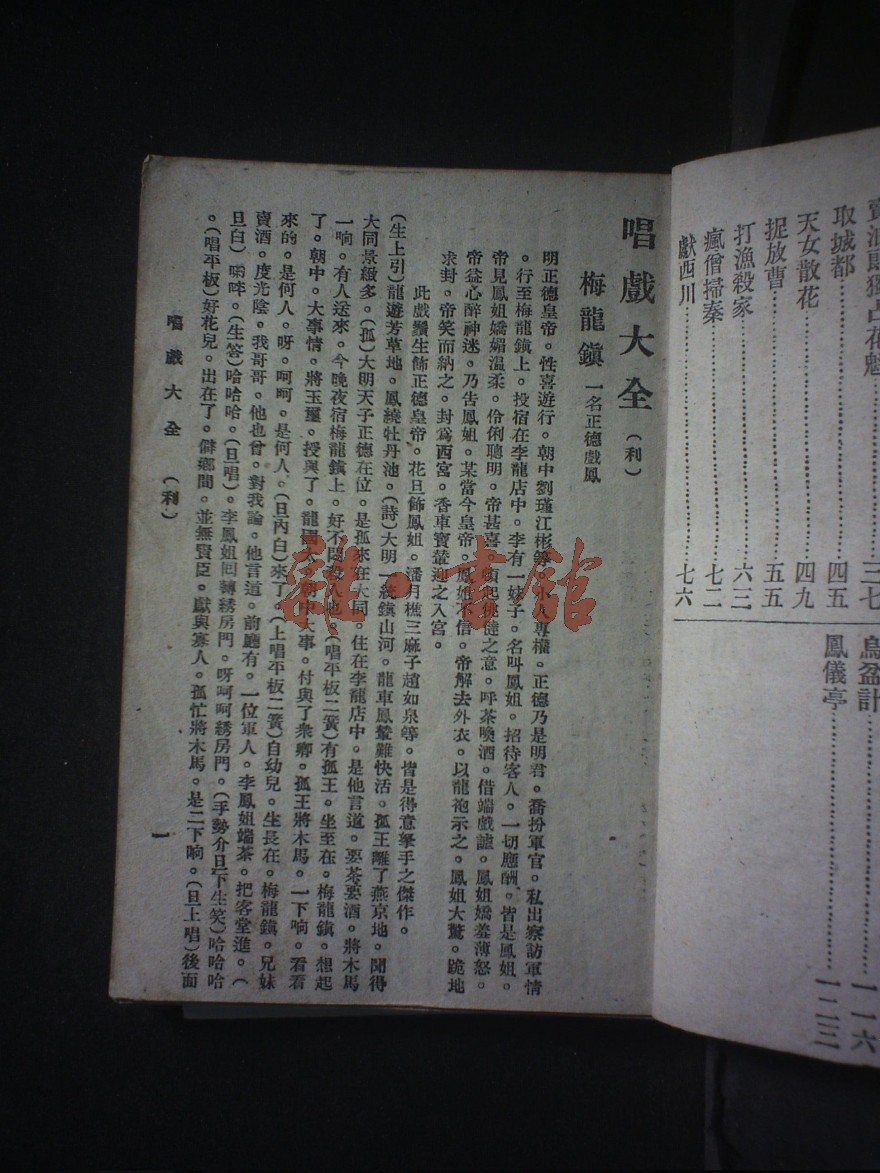 取城都……四五
天女散花……四九
捉放曹……五五
打漁殺家……六三
瘋僧掃秦……七二
獻西川……七六
烏盆計……一一六
鳳儀亭……一二三
唱戲大全(利)
梅龍鎭 一名正德戲鳳
明正德皇帝。性喜遊行。朝中劉瑾江彬等。小人專權。正德乃是明君。喬扮軍官。私出察訪軍情
。行至梅龍鎭上。投宿在李龍店中。李有一妹子。名叫鳳姐。招待客人。一切應酬。皆是鳳姐。
帝見鳳姐嬌媚温柔。伶俐聰明。帝甚喜。頓起狎㒓之意。呼茶喚酒。借端戲謔。鳳姐嬌羞薄怒。
帝益心醉神迷。乃告鳳姐。某當今皇帝。鳳姐不信。帝解去外衣。以龍袍示之。鳳姐大驚。跪地
求封。帝笑而納之。封爲西宮。香車寶輦迎之入宮。
此戲鬚生飾正德皇帝。花旦飾鳳姐。潘月樵三麻子趙如泉等。皆是得意拏手之傑作。
(生上引)龍遊芳草地。鳳繞牡丹池。(詩)大明一統鎭山河。龍車鳳輦難快活。孤王離了燕京地。聞得
大同景緻多。(孤)大明天子正德在位。是孤來在大同。住在李龍店中。是他言道。要茶要酒。將木馬
一响。有人送來。今晚夜宿梅龍鎭上。好不悶殺人也。(唱平板二簧)有孤王。坐至在。梅龍鎭。想起
了。朝中。大事情。將玉璽。授與了。龍國太。朝中大事。付與了衆卿。孤王將木馬。一下响。看看
來的。是何人。呀。呵呵。是何人。(旦內白)來了。(上唱平板二簧)自幼兒。生長在。梅龍鎭。兄妹
賣酒。度光陰。我哥哥。他也曾。對我論。他言道。前廳有。一位軍人。李鳳姐端茶。把客堂進。(
旦白)啐。(生答)哈哈哈。(旦唱)。李鳳姐回轉綉房門。呀呵呵綉房門。(手勢介旦下生笑)哈哈哈
。(唱平板)好花兒。出在了。僻鄉間。並無賢臣。獻與寡人。孤忙將木馬。是二下响。(旦上唱)後面
唱戲大全 (利)
一
雜·書館